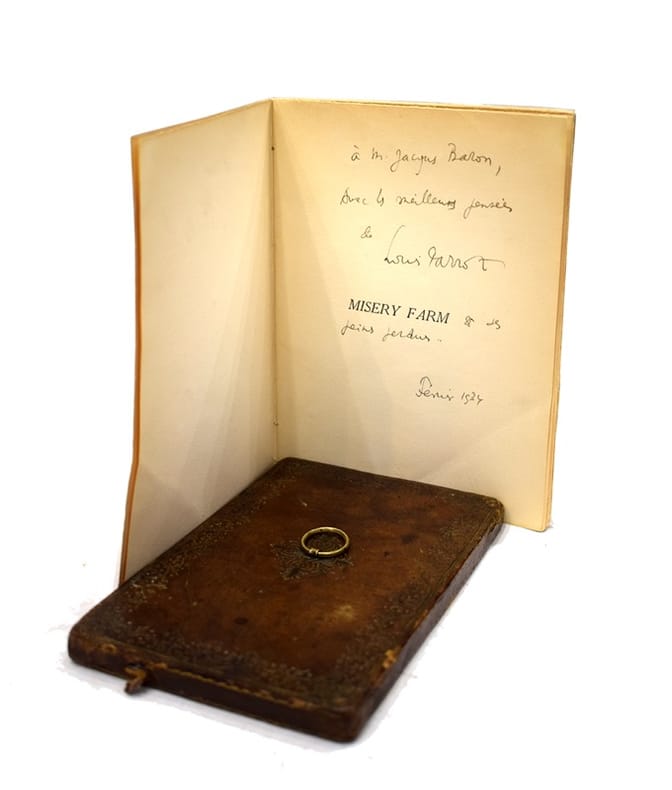 à M. Jacques Baron,
avec les meilleures pensées
de
Louis Parrot
MISERY FARM & ses
peines perdues.
Février 1934